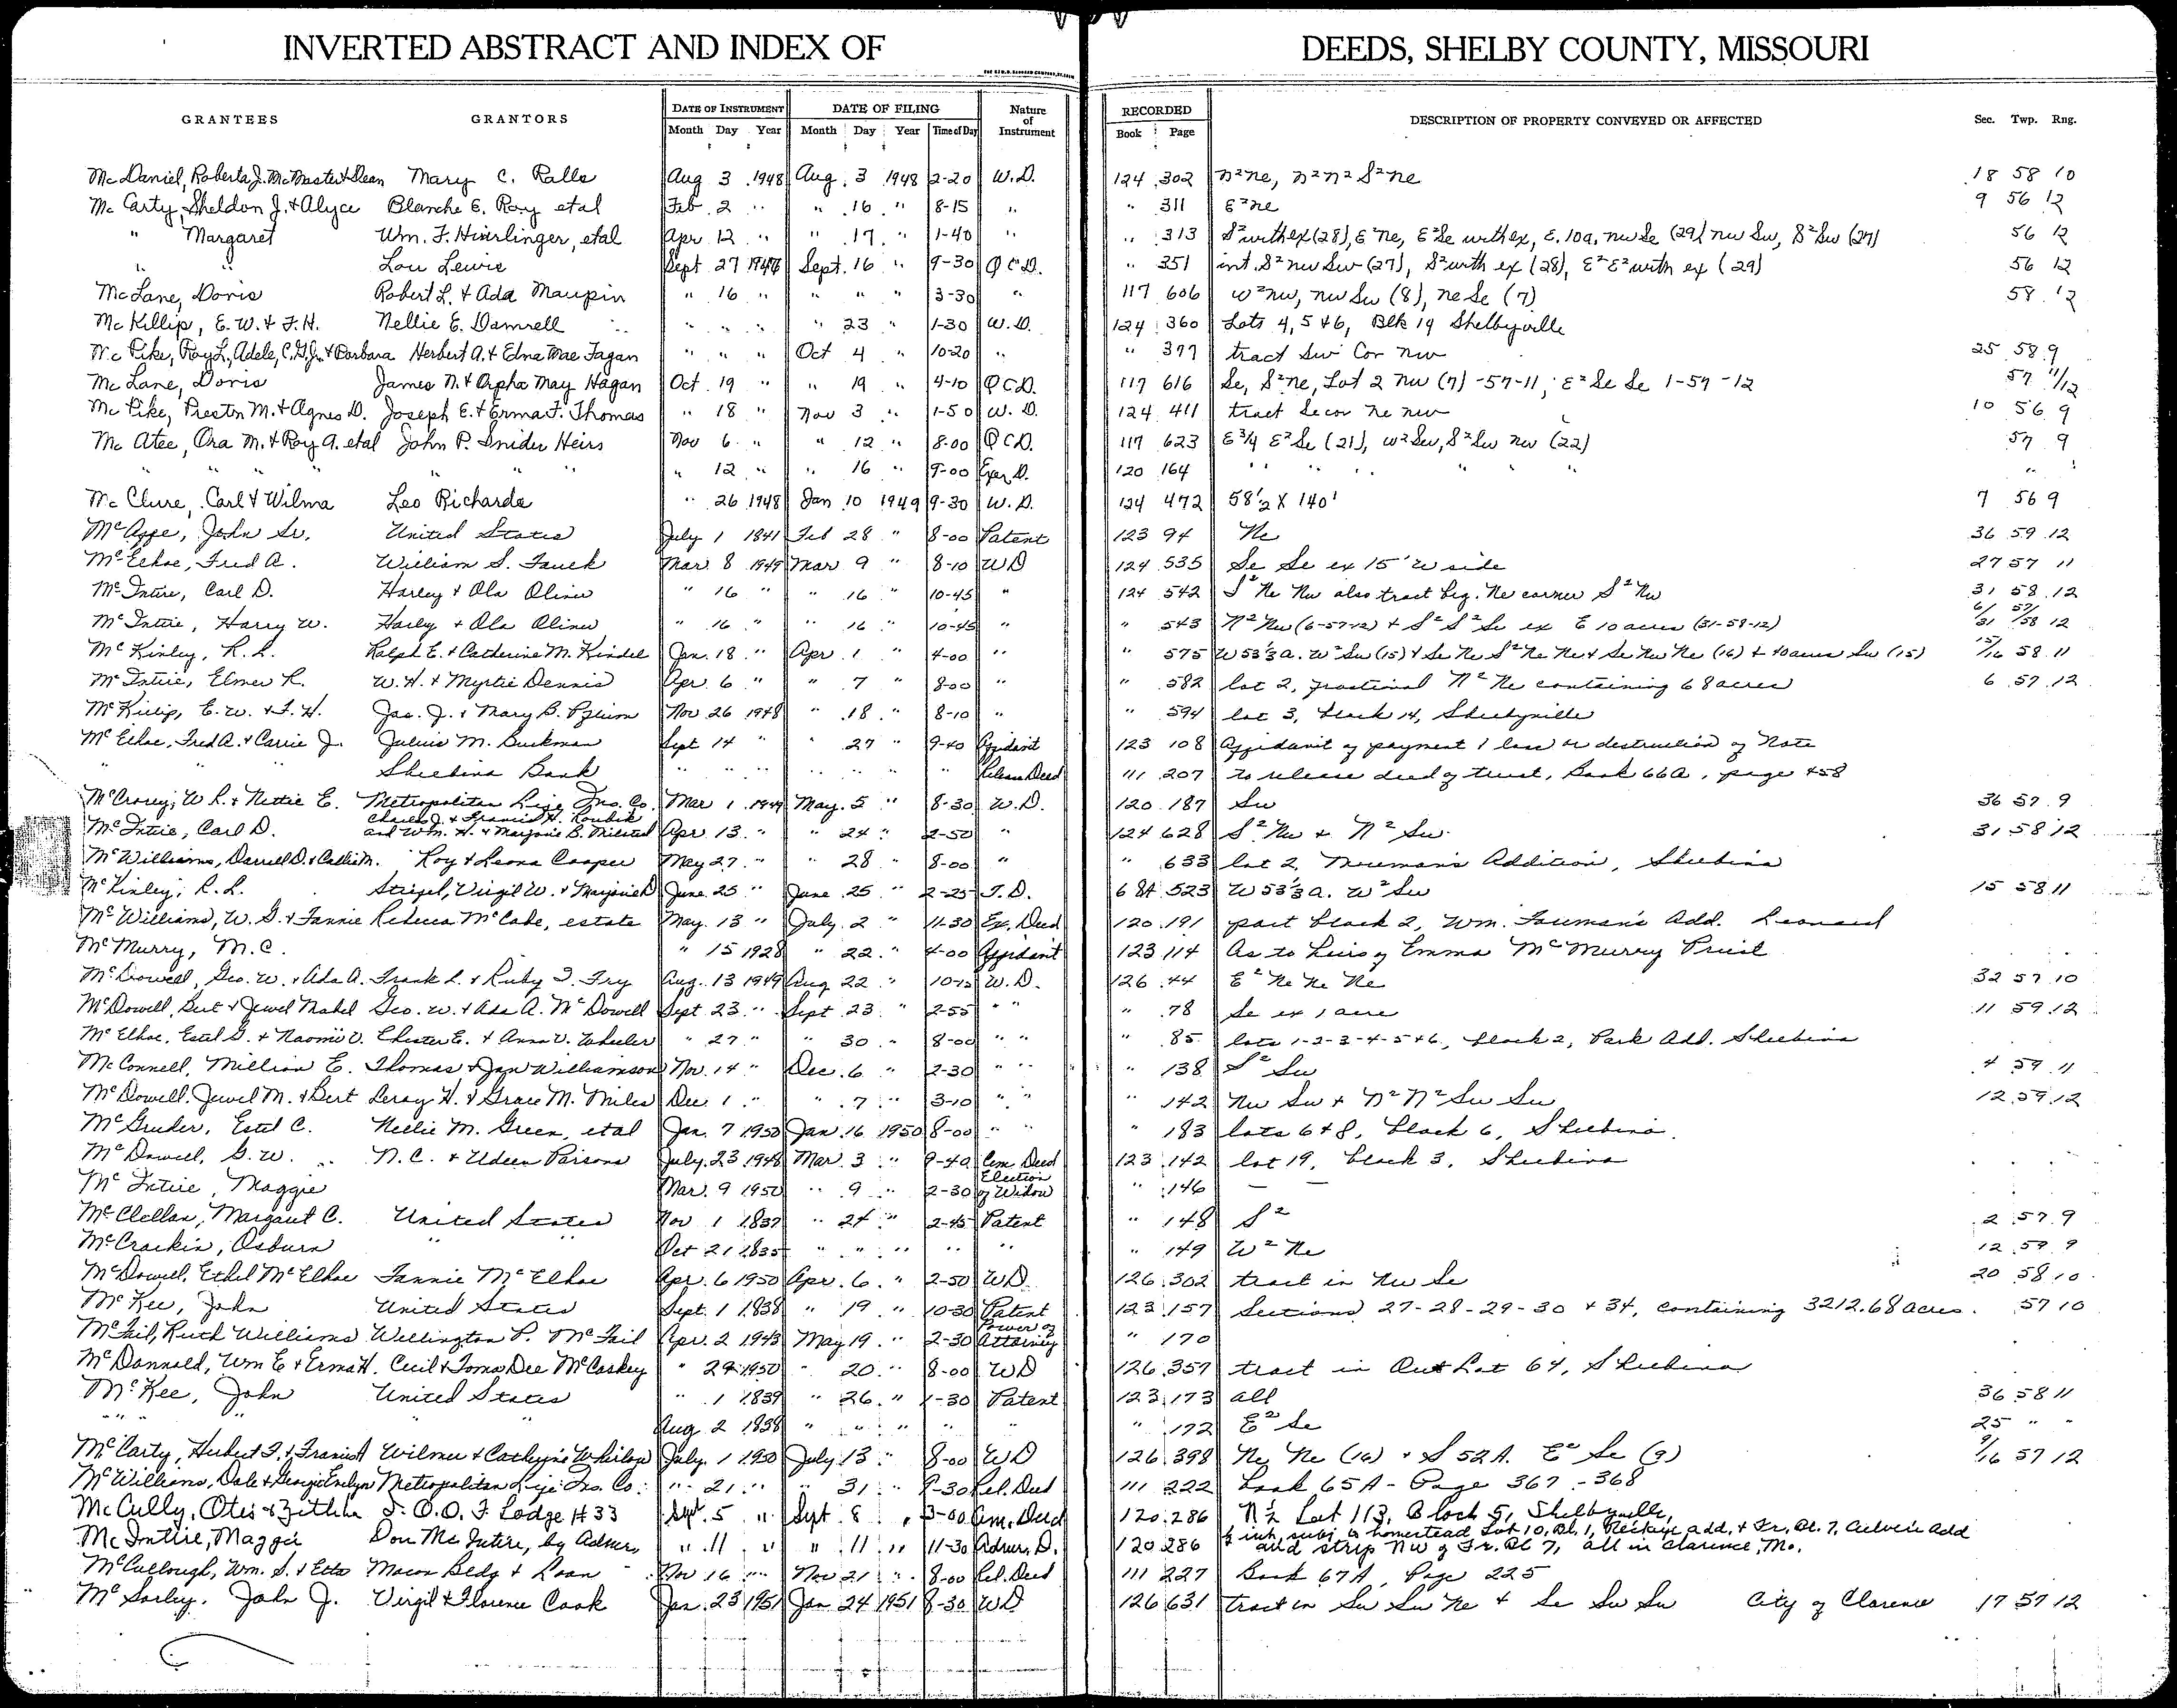 INVERTED ABSTRACT AND INDEX OF DEEDS, SHELBY COUNTY, MISSOURI
GRANTEES GRANTORS DATE OF INSTRUMENT DATE OF FILING Nature of Instrument RECORDED DESCRIPTION OF PROPERTY CONVEYED OR AFFECTED Sec. Twp. Rng.
Month Day Year Month Day Year Time of Day Book Page
McDaniel, Roberta J. McMaster & Dean Mary C. Ralls Aug 3 1948 Aug. 3 1948 2-20 W.D. 124 302 N²ne, N²N² S²ne 18 58 10
McCarty, Sheldon J. & Alyce Blanche E. Ray etal Feb. 2 " " 16 " 8-15 " " 311 E²ne 9 56 12
" Margaret Wm. F. Hirrlinger, etal Apr 12 " " 17 " 1-40 " " 313 S² with ex (28), E²Ne, E²Se with ex, E. 10a. nw Se (29) nw Sw, S²Sw (27) 56 12
" " Lou Lewis Sept 27 1946 Sept. 16 " 9-30 Q C D. " 351 int. S² nw Sw (27), S² with ex (28), E²E² with ex (29) 56 12
McLane, Doris Robert L. & Ada Maupin " 16 " " " " 3-30 " 117 606 W²nw, nw Sw (8), ne Se (7) 58 12
McKillip, E. W. & F. H. Nellie E. Damrell " " " " 23 " 1-30 W.D. 124 360 Lots 4, 5 & 6, Blk 14 Shelbyville
McPike, Roy L., Adele, C.G.Jr. & Barbara Herbert A. & Edna Mae Fagan " " " Oct 4 " 10-20 " " 397 tract Sw Cor nw 25 58 9
McLane, Doris James N. & Orpha May Hagan Oct. 19 " " 19 " 4-10 Q C D. 117 616 Se, S²ne, Lot 2 nw (7) -57-11; E² Se Se 1-57-12 57 11/12
McPike, Preston M. & Agnes D. Joseph E. & Erma F. Thomas " 18 " Nov 3 " 1-50 W.D. 124 411 tract Se cor ne nw 10 56 9
McAtee, Ora M. & Roy A. etal John P. Snider Heirs Nov 6 " " 12 " 8-00 Q C D. 117 623 E¾ E² Se (21), W² Sw, S² Sw nw (22) 57 9
" " " " " " " 12 " " 16 " 9-00 Exer D. 120 164 " " " " " " " "
McClure, Carl & Wilma Leo Richards " 26 1948 Jan 10 1949 9-30 W.D. 124 472 58½ X 140' 7 56 9
McAfee, John Sr. United States July 1 1841 Feb 28 " 8-00 Patent 123 94 Ne 36 59 12
McElhoe, Fred A. William S. Fauck Mar 8 1949 Mar 9 " 8-10 WD 124 535 Se Se ex 15' W side 27 57 11
McIntire, Carl D. Harley & Ola Oliver " 16 " " 16 " 10-45 " 124 542 S² Ne Nw also tract beg. Ne corner S² Nw 31 58 12
McIntire, Harry W. Harley & Ola Oliver " 16 " " 16 " 10-45 " " 543 N² Nw (6-57-12) & S² S² Se ex E 10 acres (31-58-12) 6/31 57/58 12
McKinley, R. L. Ralph E. & Catherine M. Kindel Jan. 18 " Apr. 1 " 4-00 " " 575 W 53⅓ a. W² Sw (15) & Se Ne S² Ne Ne & Se Nw Ne (16) & 40 acres Sw (15) 15/16 58 11
McIntire, Elmer R. W. H. & Myrtie Dennis Apr. 6 " " 7 " 8-00 " " 582 lot 2, fractional N² Ne containing 68 acres 6 57 12
McKillip, E. W. & F. H. Jas. J. & Mary B. Pflum Nov 26 1948 " 18 " 8-10 " " 594 lot 3, block 14, Shelbyville
McElhoe, Fred A. & Carrie J. Julius M. Buckman Sept 14 " " 27 " 9-40 Affidavit 123 108 Affidavit of payment & loss or destruction of Note
" " Shelbina Bank " " " " " " " Release Deed 111 207 to release deed of trust, Book 66A, page 458
McCrory, W. R. & Nettie E. Metropolitan Life Ins. Co. Mar 1 1949 May. 5 " 8-30 W.D. 120 187 Sw 36 57 9
McIntire, Carl D. Charles J. & Francis H. Koubik and Wm. H. & Marjorie B. Milsted Apr. 13 " " 24 " 2-50 " 124 628 S² Nw & N² Sw 31 58 12
McWilliams, Darrell D. & Callie M. Roy & Leona Cooper May 27 " " 28 " 8-00 " " 633 lot 2 Addition, Shelbina
McKinley, R. L. Striegel, Virgil W. & Marjorie D June 25 " June 25 " 2-25 T.D. 68A 523 W 53⅓ a. W² Sw 15 58 11
McWilliams, W. G. & Fannie Rebecca McCabe, estate May 13 " July 2 " 11-30 Ex. Deed 120 191 part block 2, Wm. Add. Leonard
McMurry, M. C. " 15 1928 " 22 " 4-00 Affidavit 123 114 As to heirs of Emma McMurry Priest
McDowell, Geo. W. & Ada A. Frank L. & Ruby I. Fry Aug. 13 1949 Aug 22 " 10-15 W.D. 126 44 E² Ne Ne Ne 32 57 10
McDowell, Bert & Jewel Mabel Geo. W. & Ada A. McDowell Sept 23 " Sept 23 " 2-55 " " " 78 Se ex 1 acre 11 59 12
McElhoe, Estel G. & Naomi V. Chester E. & Anna V. Wheeler " 27 " " 30 " 8-00 " " " 85 lots 1-2-3-4-5 & 6, block 2, Park Add. Shelbina
McConnell, Million E. Thomas & Jan Williamson Nov. 14 " Dec. 6 " 2-30 " " " 138 S² Sw 4 59 11
McDowell, Jewel M. & Bert Leroy H. & Grace M. Miles Dec 1 " " 7 " 3-10 " " " 142 Nw Sw & N² N² Sw Sw 12 59 12
McGruder, Estel C. Nellie M. Green, etal Jan. 7 1950 Jan. 16 1950 8-00 " " " 183 lots 6 & 8, block 6, Shelbina
McDowell, G. W. N. C. & Udeen Parsons July 23 1948 Mar. 3 " 9-40 Cem Deed 123 142 lot 19, block 3, Shelbina
McIntire, Maggie Mar. 9 1950 " 9 " 2-30 Election of Widow " 146 — —
McClellan, Margaret C. United States Nov 1 1837 " 24 " 2-45 Patent " 148 S² 2 57 9
McCrackin, Osburn " " Oct 21 1835 " " " " " " 149 W² Ne 12 59 9
McDowell, Ethel McElhoe Fannie McElhoe Apr. 6 1950 Apr. 6 " 2-50 WD 126 302 tract in Nw Se 20 58 10
McKee, John United States Sept. 1 1838 " 19 " 10-30 Patent 123 157 Sections 27-28-29-30 & 34, containing 3212.68 acres. 57 10
McFail, Ruth Williams Wellington P. McFail Apr. 2 1943 May 19 " 2-30 Power of Attorney " 170
McDannald, Wm E & Erma H. Cecil & Toma Dee McCaskey " 24 1950 " 20 " 8-00 WD 126 357 tract in Out Lot 64, Shelbina
McKee, John United States " 1 1839 " 26 " 1-30 Patent 123 173 all 36 58 11
" " " " Aug 2 1838 " " " " " " 172 E² Se 25 " "
McCarty, Hubert T. & Francis A Wilmer & Cathyrine Whitlow July 1 1950 July 13 " 8-00 WD 126 398 Ne Ne (16) & S 52A. E² Se (9) 9/16 57 12
McWilliams, Dale & Georgie Evelyn Metropolitan Life Ins. Co. " 21 " " 31 " 9-30 Rel. Deed 111 222 Book 65A - Page 367-368
McCully, Otis & Zitha I. O. O. F. Lodge # 33 Sept. 5 " Sept 8 " 3-00 Cem. Deed 120 286 N½ Lot 113, Block 5, Shelbyville,
McIntire, Maggie Don McIntire, by Admr. " 11 " " 11 " 11-30 Admr. D. 120 286 ½ int, subj to homestead Lot 10, Bl. 1, add. & Fr. Bl. 7, Culver's Add and strip NW of Fr. Bl 7, all in Clarence, Mo.
McCullough, Wm. S. & Etta Macon Bldg & Loan Nov 16 " Nov 21 " 8-00 Rel. Deed 111 227 Book 67A, Page 225
McSorley, John J. Virgil & Florence Cook Jan. 23 1951 Jan 24 1951 8-30 WD 126 631 tract in Sw Sw Ne & Se Sw Sw City of Clarence 17 57 12